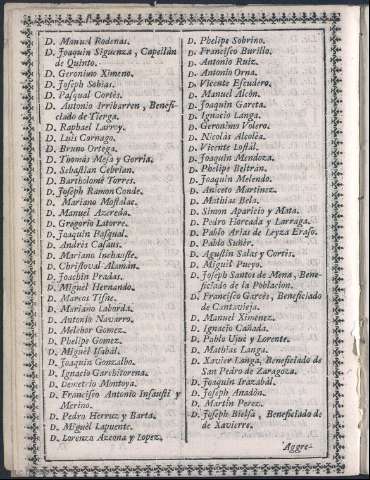 D. Manuel Rodenas.
D. Joaquin Siguenza, Capellàn
de Quinto.
D. Geronimo Ximeno.
D. Joseph Sobias.
D. Pasqual Cortès.
D. Antonio Irribarren, Benefi-
ciado de Tierga.
D. Raphael Larroy.
D. Luis Cornago.
D. Bruno Ortega.
D. Thomàs Mesa y Gorria.
D. Sebastian Cebrian.
D. Bartholomè Torres.
D. Joseph Ramon Conde.
D. Mariano Mostalac.
D. Manuel Azereda.
D. Gregorio Latorre.
D. Joaquin Pasqual.
D. Andrès Casaus.
D. Mariano Inchauste.
D. Christoval Alamàn.
D. Joachin Pradas.
D. Miguèl Hernando.
D. Marcos Tisne.
D. Mariano Laborda.
D. Antonio Navarro.
D. Melchor Gomez.
D. Phelipe Gomez.
D. Miguèl Isabàl.
D. Joaquin Gonzalbo.
D. Ignacio Garchitorena.
D. Demetrio Montoya.
D. Francisco Antonio Insausti y
Merino.
D. Pedro Herruz y Barta.
D. Miguèl Lapuente.
D. Lorenza Azcona y Lopez.
D. Phelipe Sobrino.
D. Francisco Burillo.
D. Antonio Ruiz.
D. Antonio Orna.
D. Vicente Escudero.
D. Manuel Alcòn.
D. Joaquin Gareta.
D. Ignacio Langa.
D. Geronimo Volero.
D. Nicolàs Alcolea.
D. Vicente Lostàl.
D. Joaquin Mendoza.
D. Phelipe Beltràn.
D. Joaquin Melendo.
D. Aniceto Martinez.
D. Mathias Bela.
D. Simon Aparicio y Mata.
D. Pedro Horcada y Larraga.
D. Pablo Arias de Leyza Eraso.
D. Pablo Suñèr.
D. Agustin Salas y Cortès.
D. Miguèl Pueyo.
D. Joseph Santos de Mena, Bene-
ficiado de la Poblacion.
D. Francisco Garcès, Beneficiado
de Cantavieja.
D. Manuel Ximenez.
D. Ignacio Cañada.
D. Pablo Ujuè y Lorente.
D. Mathias Langa.
D. Xavier Langa, Beneficiado de
San Pedro de Zaragoza.
D. Joaquin Irazabal.
D. Joseph Anadòn.
D. Martin Perez.
D. Joseph Bielsa, Beneficiado de
de Xavierre.
Aggre-